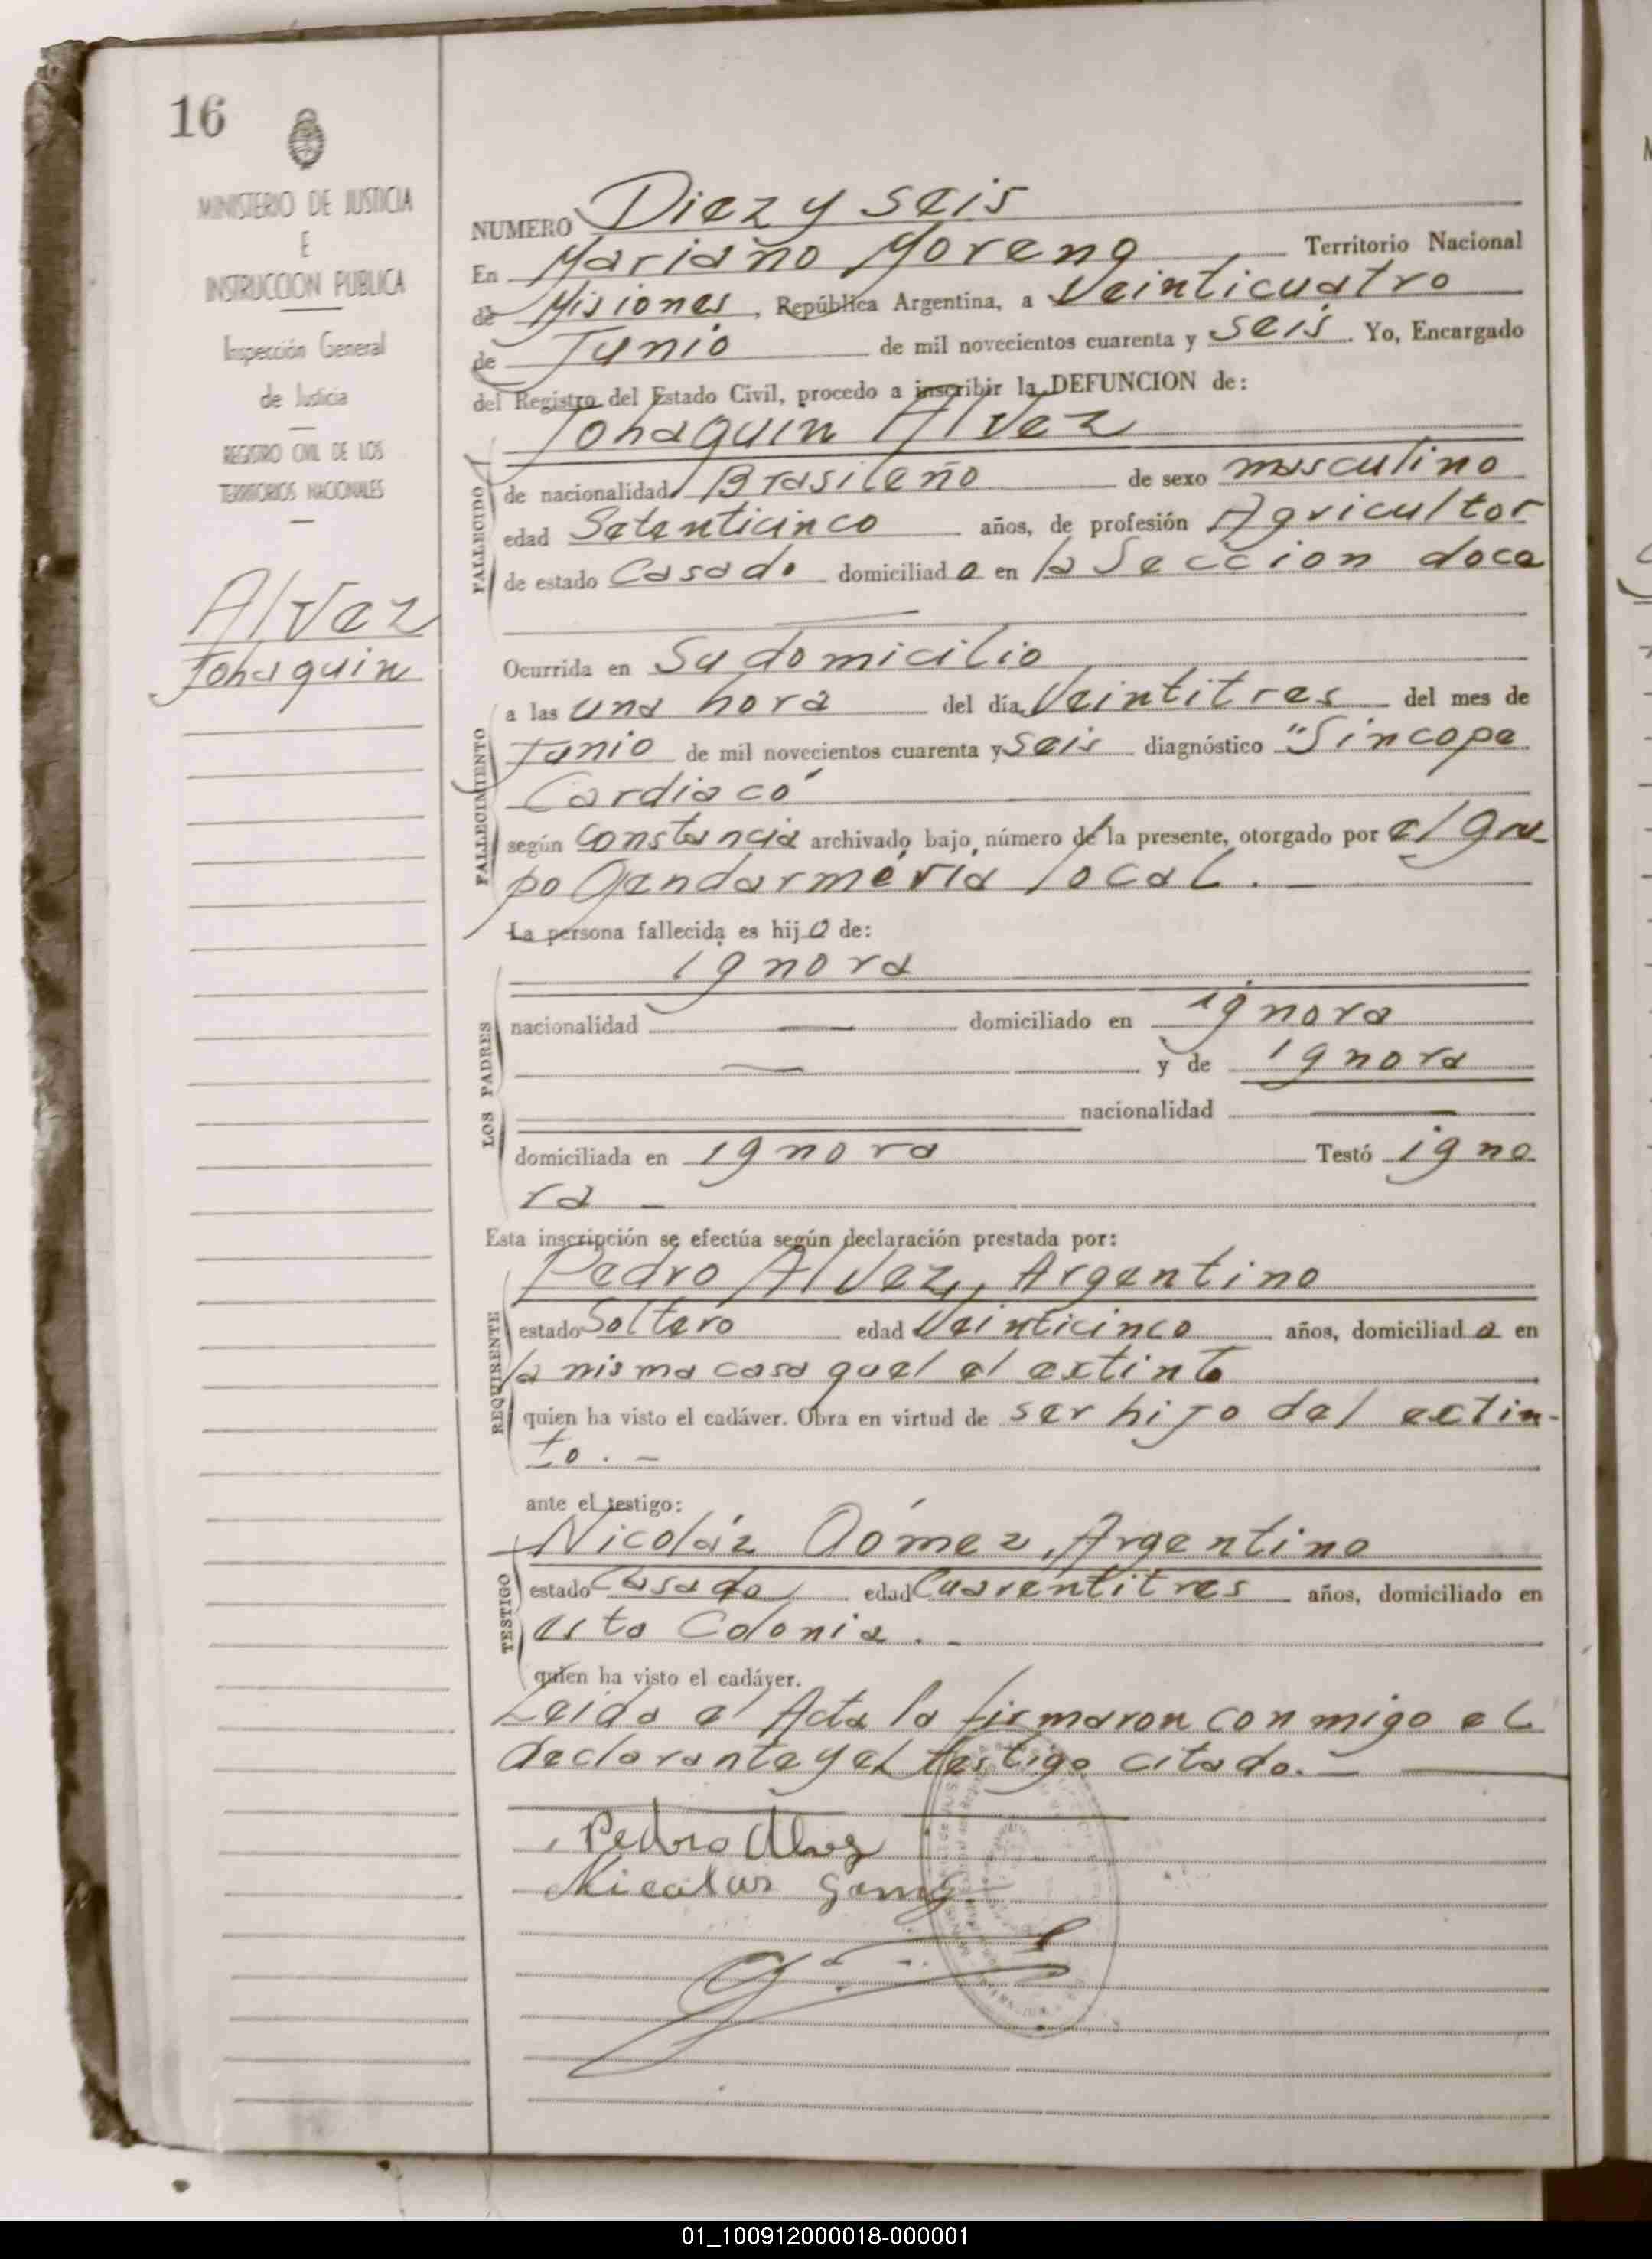 16
MINISTERIO DE JUSTICIA
E
INSTRUCCION PUBLICA
Inspección General
de Justicia
REGISTRO CIVIL DE LOS
TERRITORIOS NACIONALES
Alvez
Johaquin
NUMERO Diez y seis
En Mariano Moreno Territorio Nacional
de Misiones, República Argentina, a Veinticuatro
de Junio de mil novecientos cuarenta y seis. Yo, Encargado
del Registro del Estado Civil, procedo a inscribir la DEFUNCION de:
Johaquin Alvez
FALLECIDO
de nacionalidad Brasileño de sexo masculino
edad Setenticinco años, de profesión Agricultor
de estado Casado domiciliado en la Seccion doce
FALLECIMIENTO
Ocurrida en Su domicilio
a las una hora del día Veintitres del mes de
Junio de mil novecientos cuarenta y Seis diagnóstico "Sincope
Cardiaco"
según Constancia archivado bajo número de la presente, otorgado por el gru-
po Gendarmeria local. -
La persona fallecida es hijo de:
LOS PADRES
ignora
nacionalidad — domiciliado en ignora
— y de ignora
nacionalidad —
domiciliada en ignora Testó igno
ra -
Esta inscripción se efectúa según declaración prestada por:
REQUIRENTE
Pedro Alvez, Argentino
estado Soltero edad Veinticinco años, domiciliado en
la misma casa quel el extinto
quien ha visto el cadáver. Obra en virtud de ser hijo del extin-
to. -
ante el testigo:
TESTIGO
Nicoláz Gómez, Argentino
estado Casado edad Cuarentitres años, domiciliado en
esta Colonia. -
quien ha visto el cadáver.
Leida el Acta la firmaron conmigo el
declarante y el testigo citado. -
Pedro Alvez
Nicolas Gomez
01_100912000018-000001